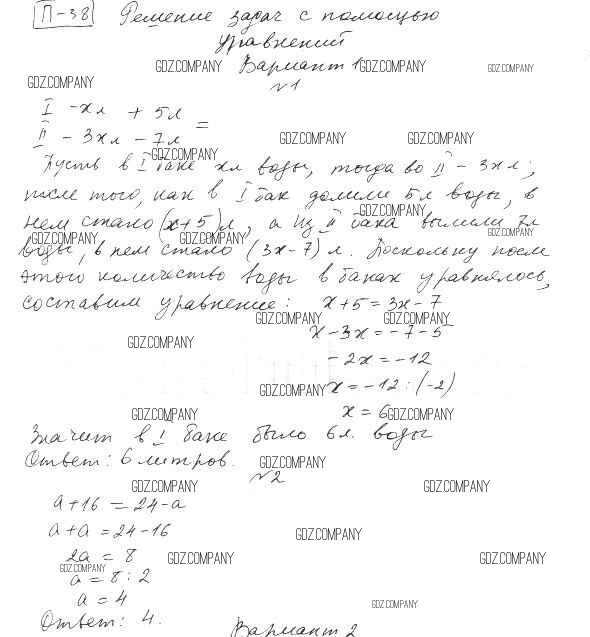 П-38 Решение задач с помощью
уравнений
GDZ.COMPANY Вариант 1 GDZ.COMPANY GDZ.COMPANY
GDZ.COMPANY №1
I - xл + 5л
II - 3xл - 7л =
GDZ.COMPANY GDZ.COMPANY
GDZ.COMPANY
Пусть в I баке xл воды, тогда во II - 3xл;
после того, как в I бак долили 5л воды, в
GDZ.COMPANY
нем стало (x+5)л, а из II бака вылили 7л
GDZ.COMPANY GDZ.COMPANY GDZ.COMPANY
воды, в нем стало (3x-7) л. Поскольку после
этого количество воды в баках уравнялось,
составим уравнение: x+5=3x-7
GDZ.COMPANY GDZ.COMPANY
x-3x=-7-5
GDZ.COMPANY
-2x=-12
GDZ.COMPANY x=-12:(-2)
GDZ.COMPANY x=6 GDZ.COMPANY
Значит в I баке было 6л. воды
Ответ: 6 литров. GDZ.COMPANY
№2
GDZ.COMPANY GDZ.COMPANY
a+16=24-a
a+a=24-16 GDZ.COMPANY
2a=8 GDZ.COMPANY GDZ.COMPANY
GDZ.COMPANY
a=8:2
a=4 GDZ.COMPANY
Ответ: 4.
Вариант 2